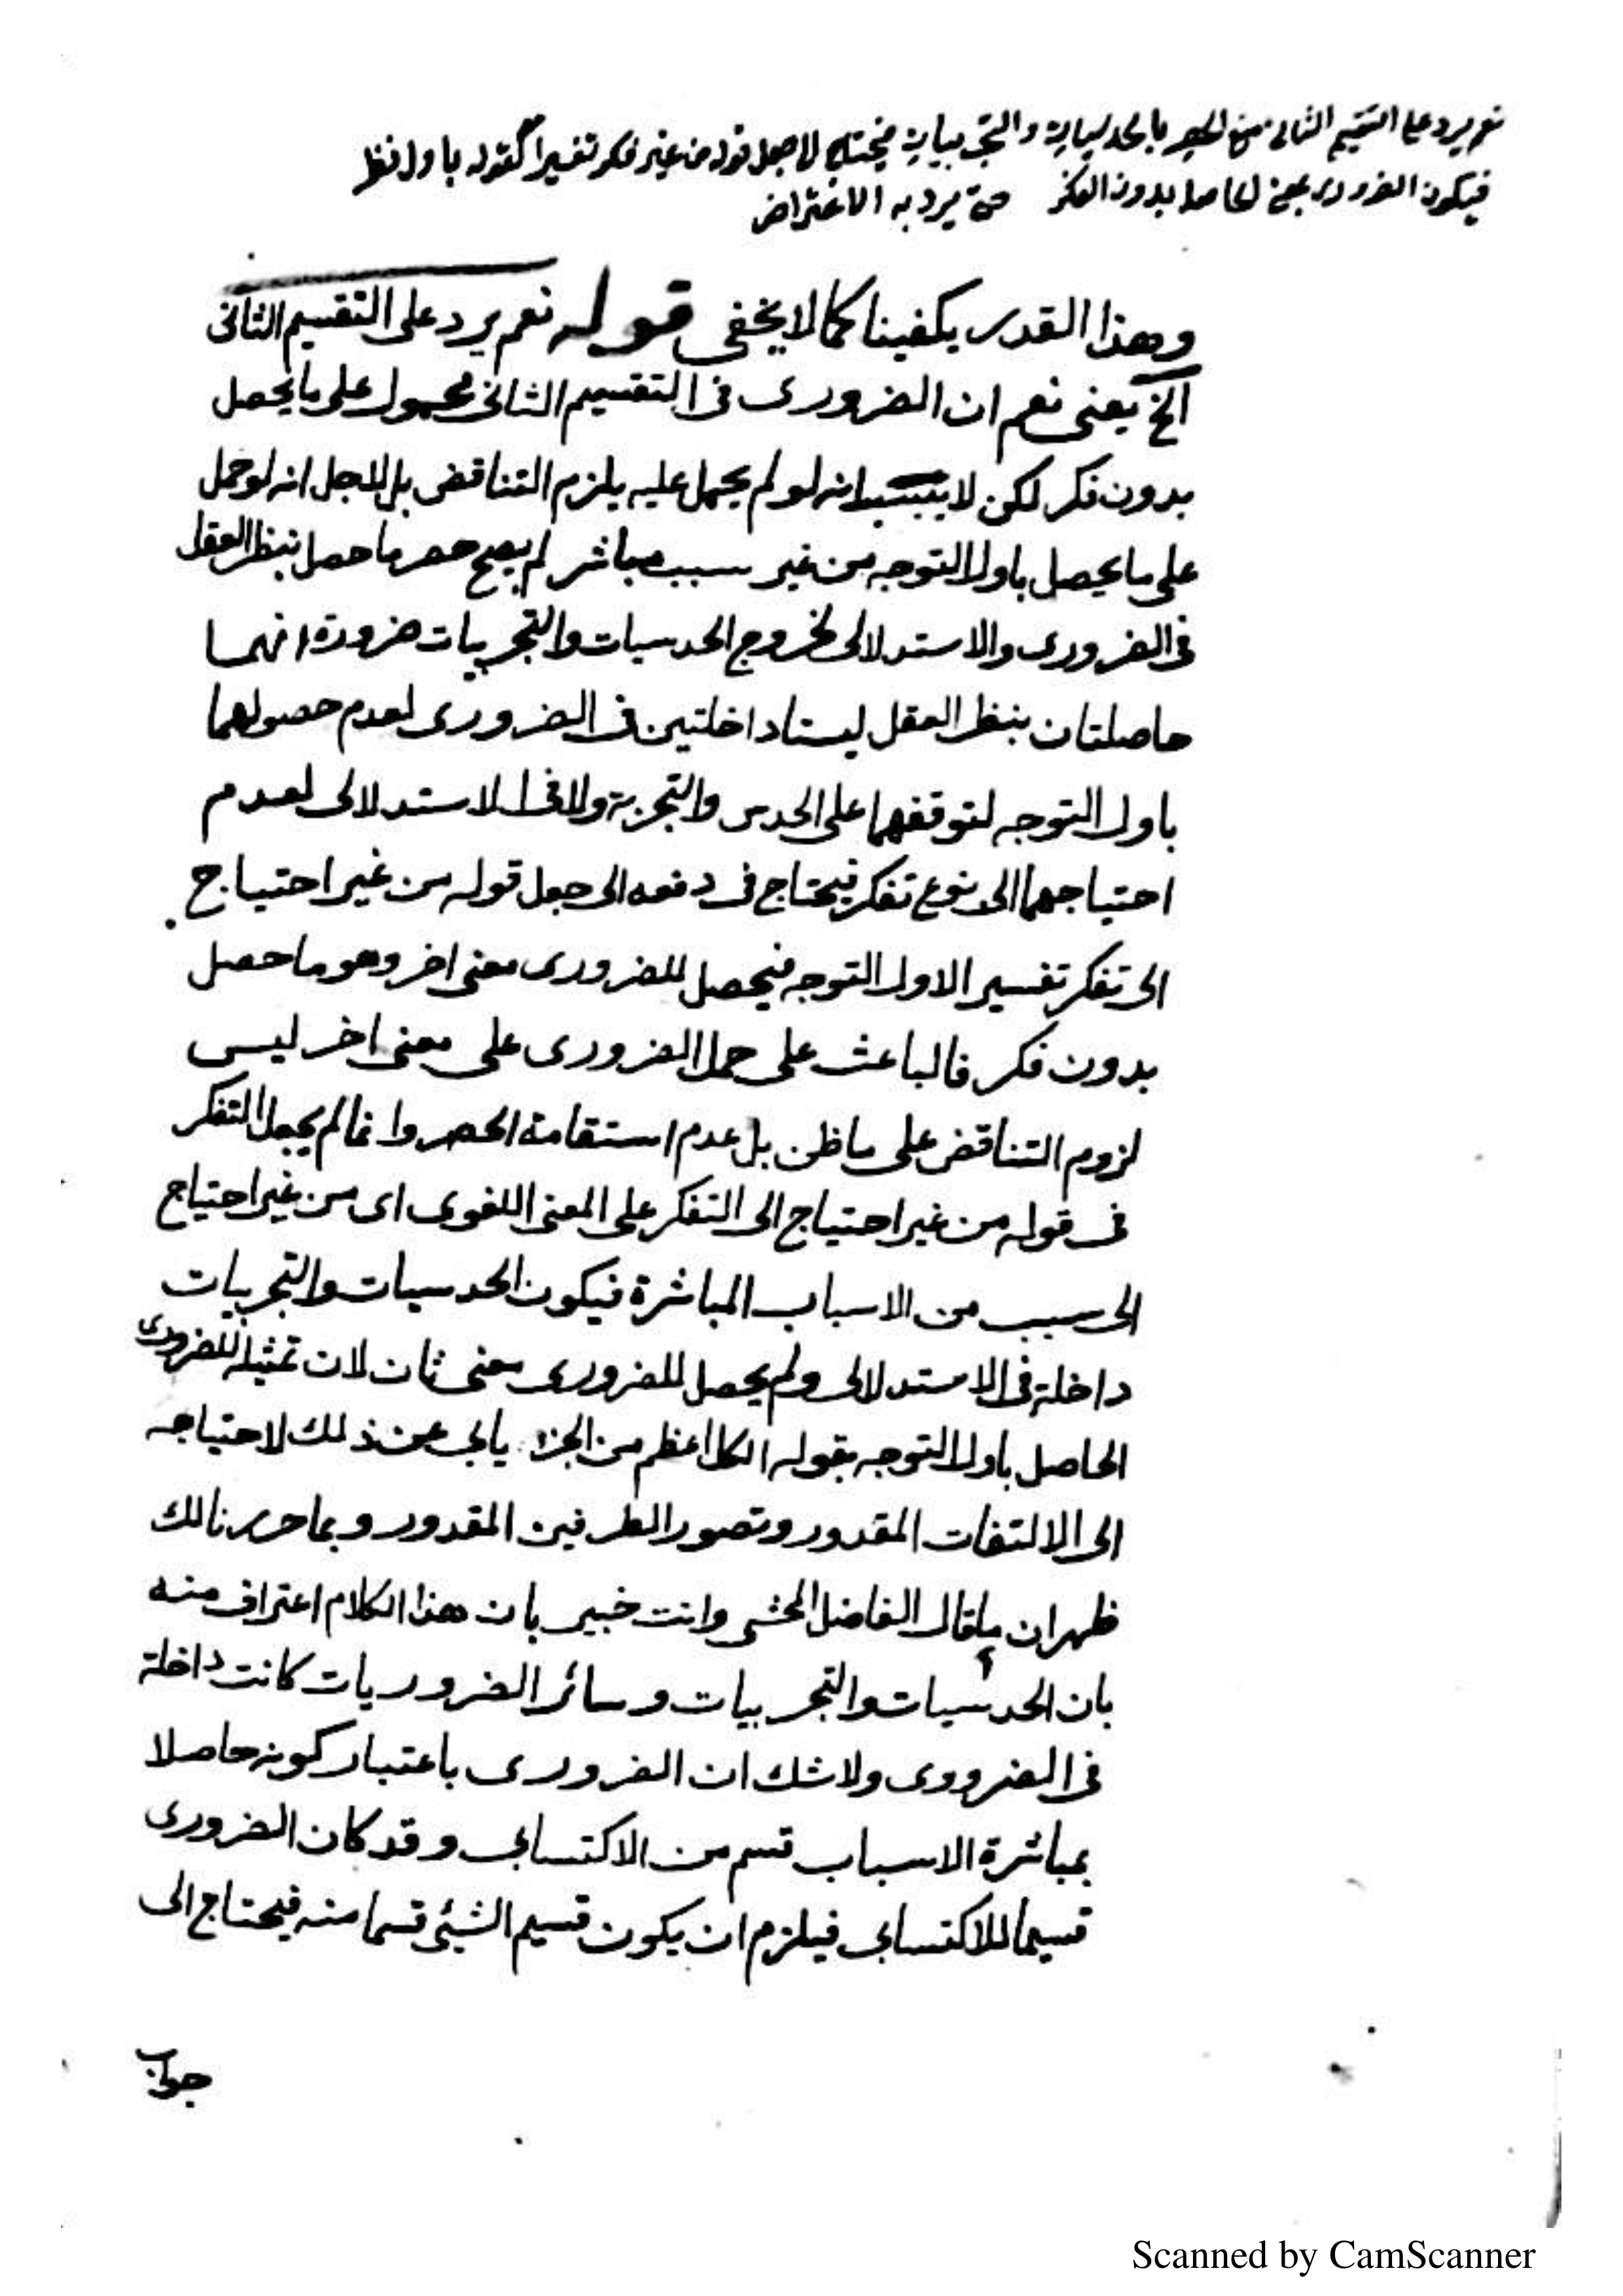 نعم يرد على التقسيم الثانى منع الحصر بالحدسيات والتجربيات فيحتاج لاجعل قوله من غير فكر تفسيرا لقوله باول نظر
فيكون الضرورى بمعنى الحاصل بدون الفكر حتى يرد به الاعتراض
وهذا القدر يكفينا كما لا يخفى قوله نعم يرد على التقسيم الثانى
الخ يعنى نعم ان الضرورى فى التقسيم الثانى محمول على ما يحصل
بدون فكر لكن لا بسبب انه لو لم يحمل عليه يلزم التناقض بل لاجل انه لو حمل
على ما يحصل باول التوجه من غير سبب مباشر لم يصح حصر ما حصل بنظر العقل
فى الضرورى والاستدلالى لخروج الحدسيات والتجربيات ضرورة انهما
حاصلتان بنظر العقل ليستا داخلتين فى الضرورى لعدم حصولهما
باول التوجه لتوقفهما على الحدس والتجربة ولا فى الاستدلالى لعدم
احتياجهما الى نوع تفكر فيحتاج فى دفعه الى جعل قوله من غير احتياج
الى تفكر تفسير الاول التوجه فيحصل للضرورى معنى اخر وهو ما حصل
بدون فكر فالباعث على حمل الضرورى على معنى اخر ليس
لزوم التناقض على ما ظن بل عدم استقامة الحصر وانما لم يجعل التفكر
فى قوله من غير احتياج الى التفكر على المعنى اللغوى اى من غير احتياج
الى سبب من الاسباب المباشرة فيكون الحدسيات والتجربيات
داخلة فى الاستدلالى ولم يحصل للضرورى معنى ثان لان تمثيله للضرورى
الحاصل باول التوجه بقوله الكل اعظم من الجزء يابى عن ذلك لاحتياجه
الى الالتفات المقدور وتصور الطرفين المقدور وبما حررنا لك
ظهر ان ما قال الفاضل المحشى وانت خبير بان هذا الكلام اعتراف منه
بان الحدسيات والتجربيات وسائر الضروريات كانت داخلة
فى الضرورى ولا شك ان الضرورى باعتبار كونه حاصلا
بمباشرة الاسباب قسم من الاكتسابى وقد كان الضرورى
قسيما للاكتسابى فيلزم ان يكون قسيم الشيئ قسما منه فيحتاج الى
جواب
Scanned by CamScanner